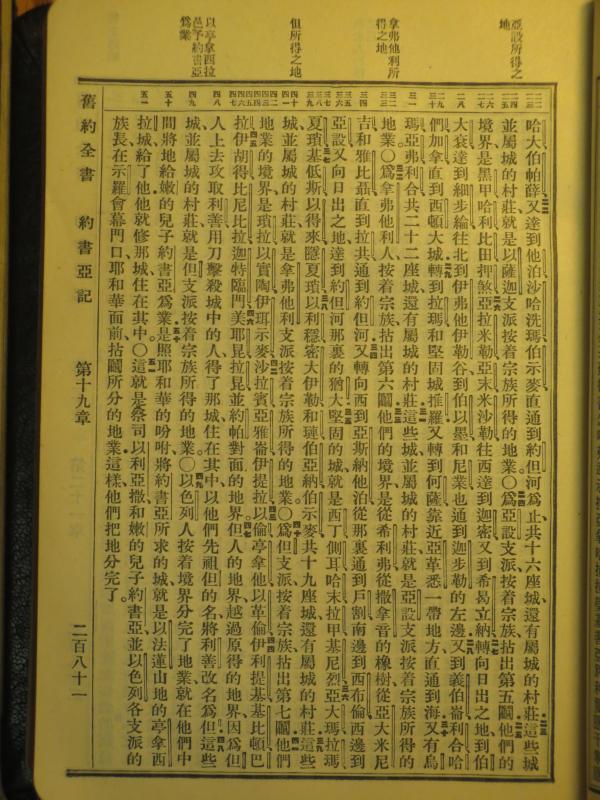 亞設所得之
地
拿弗他利所
得之地
但所得之地
以亭拿西拉
邑予約書亞
爲業
哈大伯帕薛又達到他泊沙哈洗瑪伯示麥直通到約但河爲止共十六座城還有屬城的村莊這些城
並屬城的村莊就是以薩迦支派按着宗族所得的地業〇爲亞設支派按着宗族拈出第五鬮他們的
境界是黑甲哈利比田押煞亞拉米勒亞末米沙勒往西達到迦密又到希曷立納轉向日出之地到伯
大袞達到細步綸往北到伊弗他伊勒谷到伯以墨和尼業也通到迦步勒的左邊又到義伯崙利合哈
們加拿直到西頓大城轉到拉瑪和堅固城推羅又轉到何薩靠近亞革悉一帶地方直通到海又有烏
瑪亞弗利合共二十二座城還有屬城的村莊這些城並屬城的村莊就是亞設支派按着宗族所得的
地業〇爲拿弗他利人按着宗族拈出第六鬮他們的境界是從希利弗從撒拿音的橡樹從亞大米尼
吉和雅比聶直到拉共通到約但河又轉向西到亞斯納他泊從那裏通到戶割南邊到西布倫西邊到
亞設又向日出之地達到約但河那裏的猶大堅固的城就是西丁側耳哈末拉甲基尼烈亞大瑪拉瑪
夏瑣基低斯以得來隱夏瑣以利穩密大伊勒和璉伯亞納伯示麥共十九座城還有屬城的村莊這些
城並屬城的村莊就是拿弗他利支派按着宗族所得的地業〇爲但支派按着宗族拈出第七鬮他們
地業的境界是瑣拉以實陶伊珥示麥沙拉賓亞雅崙伊提拉以倫亭拿他以革倫伊利提基基比頓巴
拉伊胡得比尼比拉迦特臨門美耶昆拉昆並約帕對面的地界但人的地界越過原得的地界因爲但
人上去攻取利善用刀擊殺城中的人得了那城住在其中以他們先祖但的名將利善改名爲但這些
城並屬城的村莊就是但支派按着宗族所得的地業〇以色列人按着境界分完了地業就在他們中
間將地給嫩的兒子約書亞爲業是照耶和華的吩咐將約書亞所求的城就是以法蓮山地的亭拿西
拉城給了他他就修那城住在其中〇這就是祭司以利亞撒和嫩的兒子約書亞並以色列各支派的
族長在示羅會幕門口耶和華面前拈鬮所分的地業這樣他們把地分完了。
舊約全書 約書亞記 第十九章 二百八十一